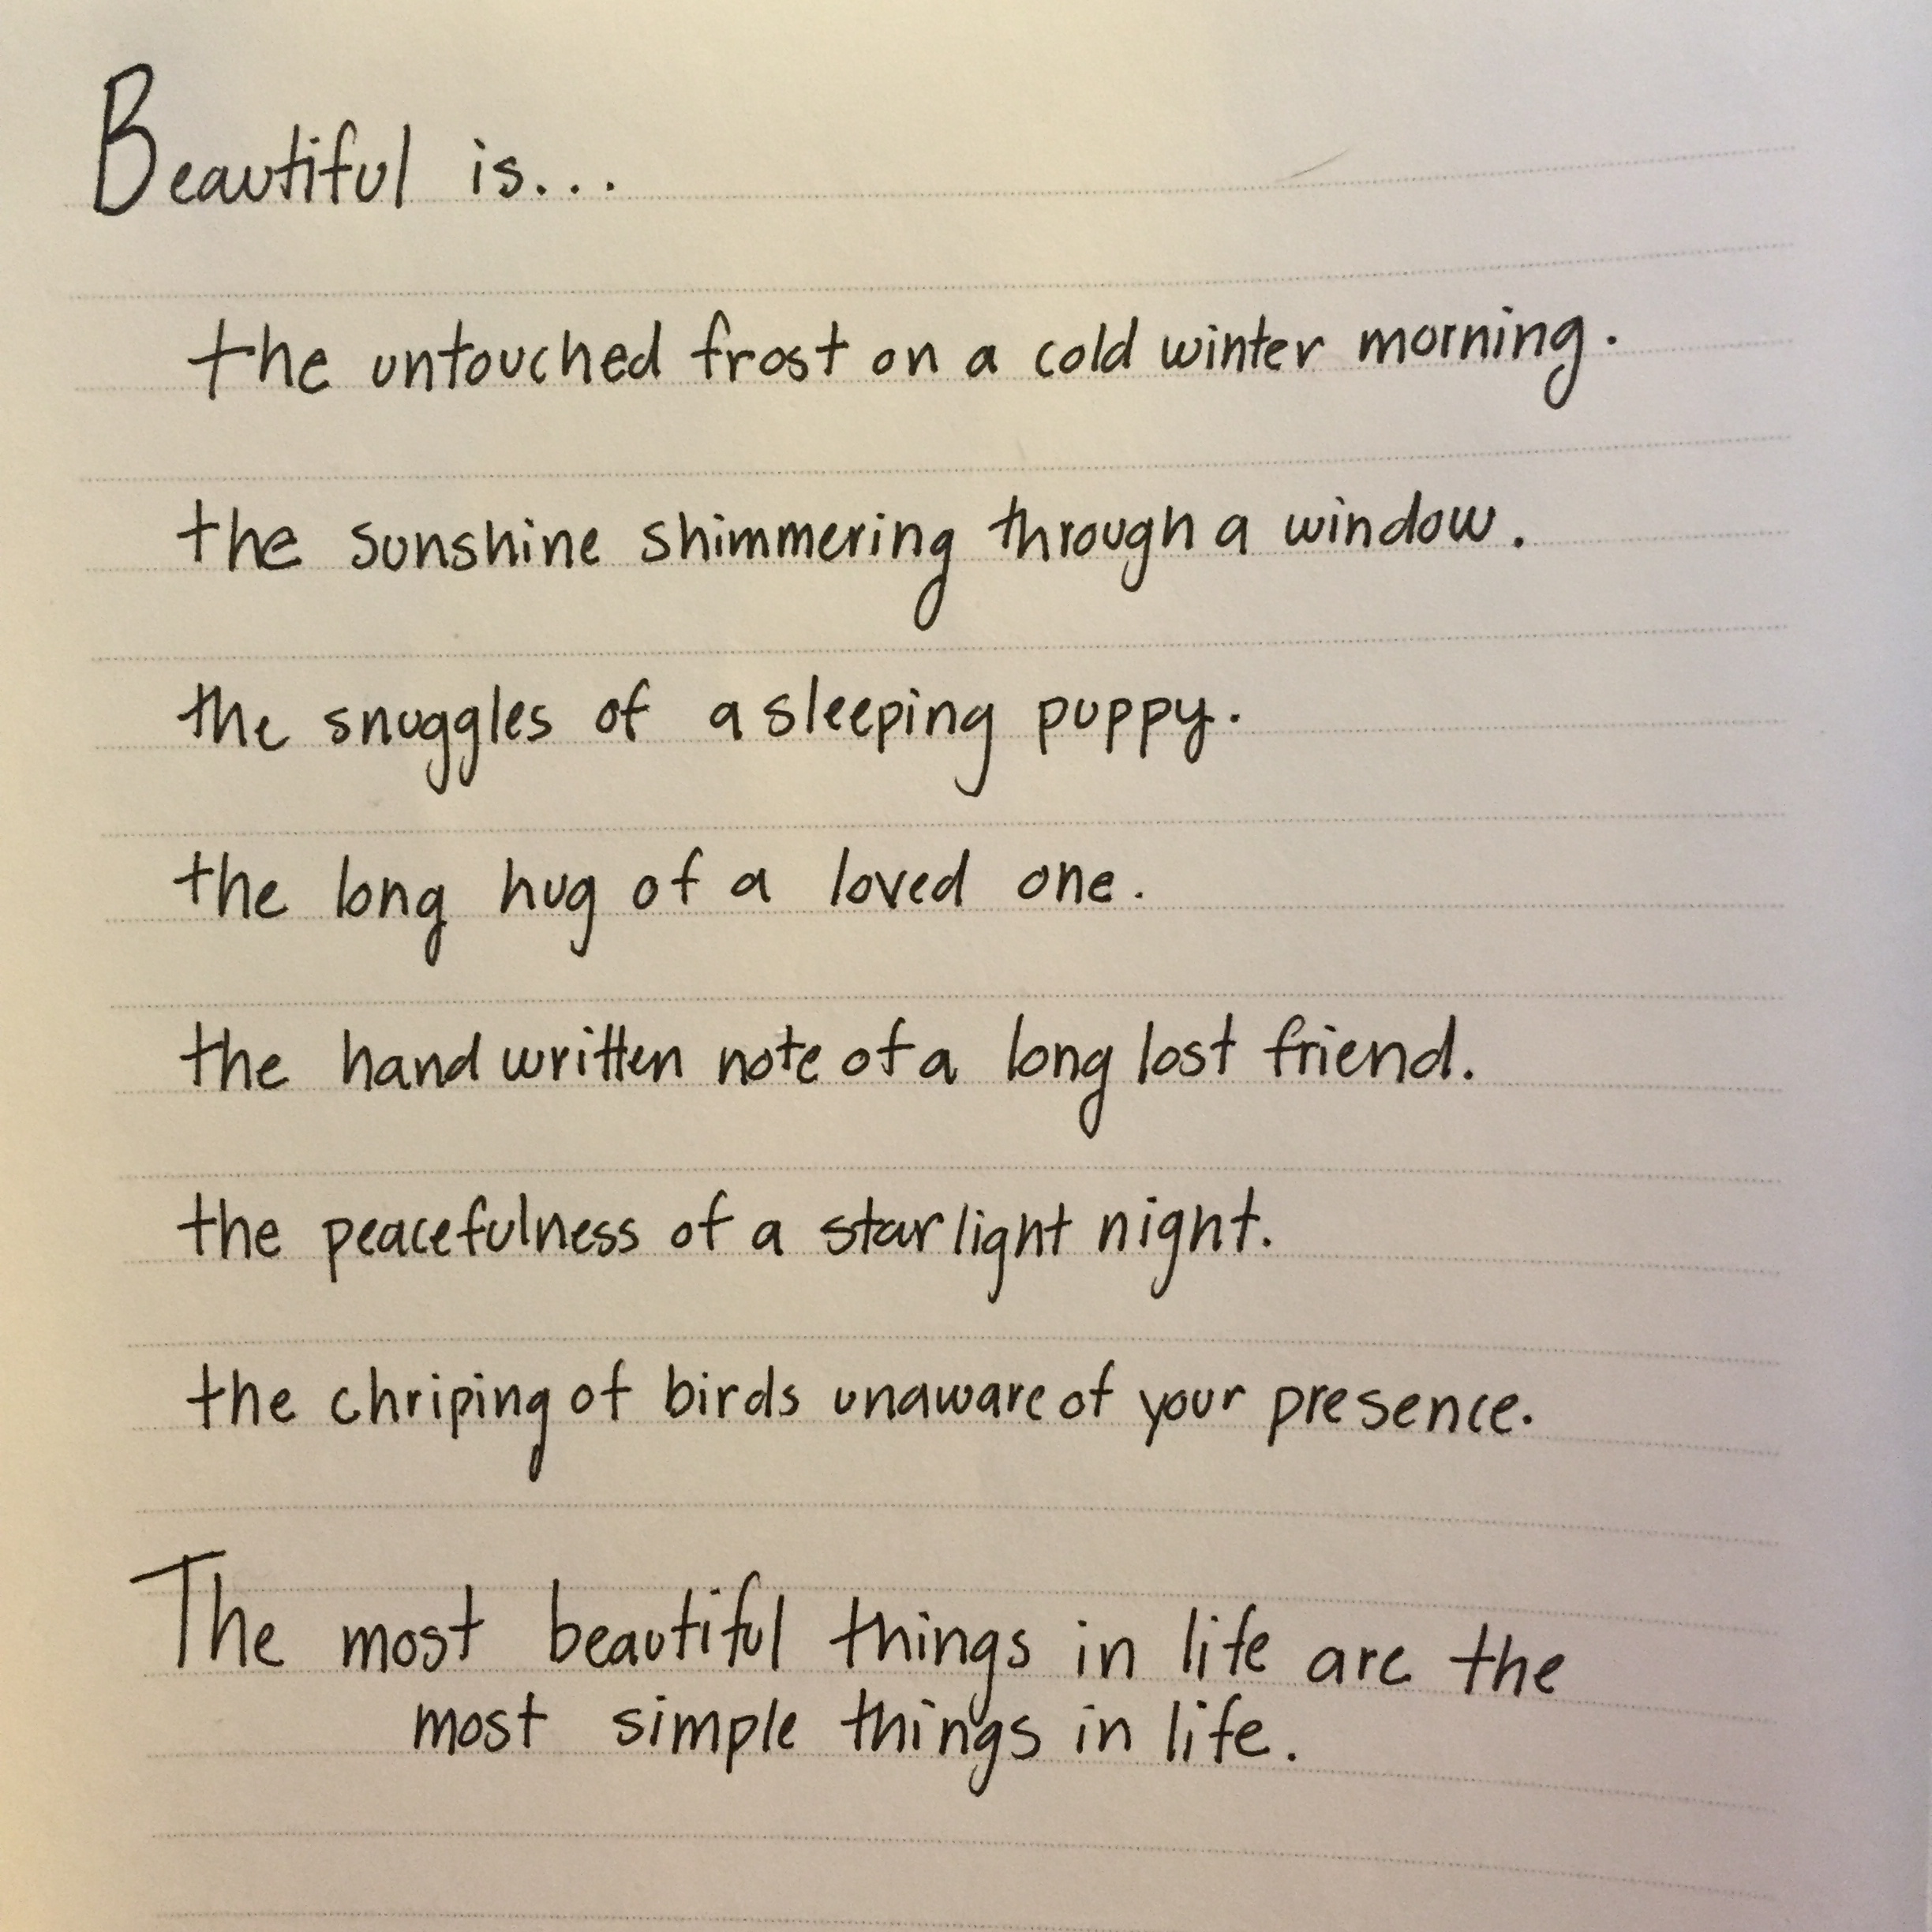 Beautiful is...
the untouched frost on a cold winter morning.
the sunshine shimmering through a window.
the snuggles of a sleeping puppy.
the long hug of a loved one.
the hand written note of a long lost friend.
the peacefulness of a star light night.
the chriping of birds unaware of your presence.
The most beautiful things in life are the
most simple things in life.